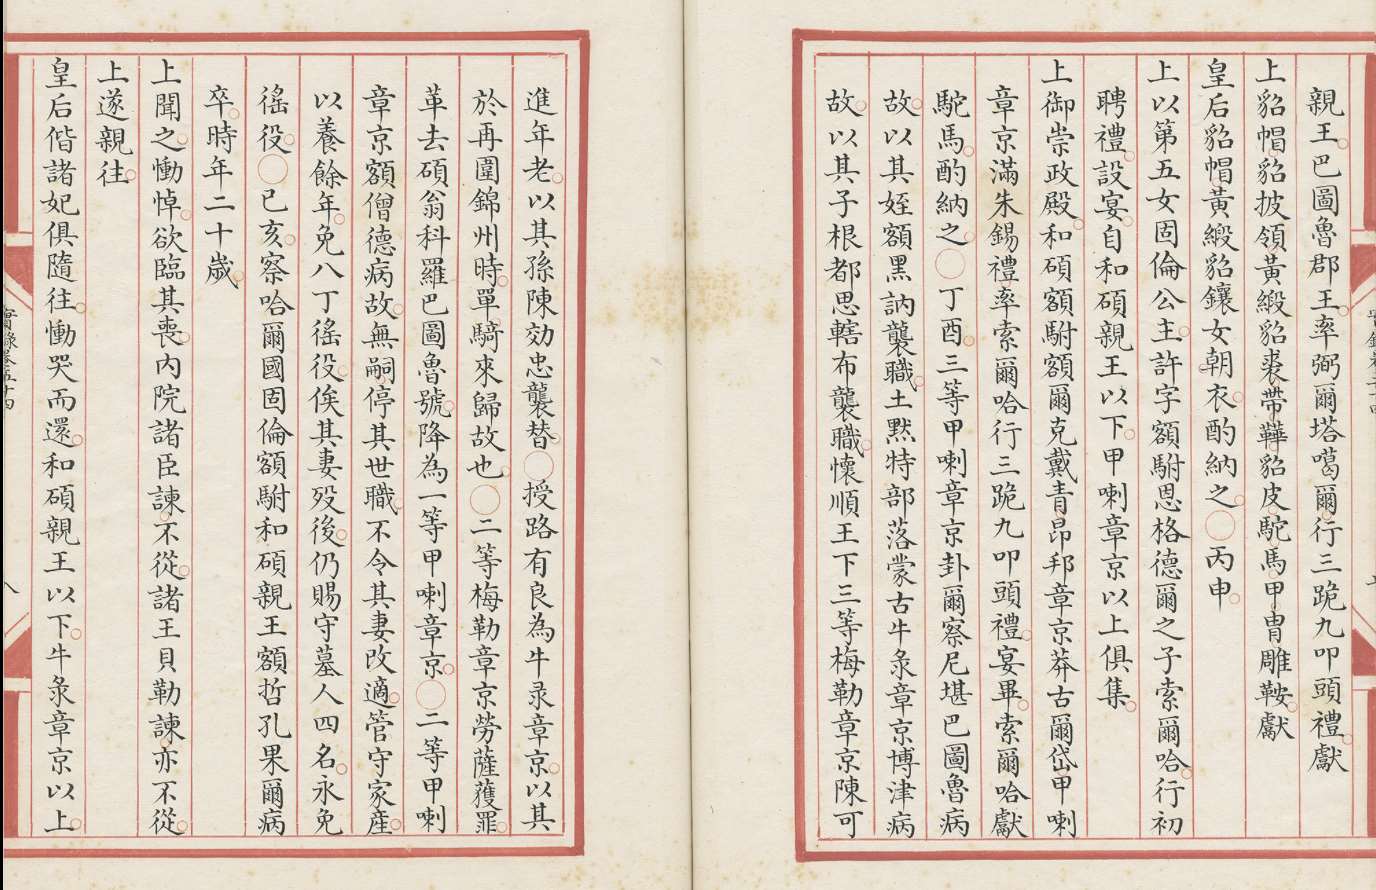 親王巴圖魯郡王率弼爾塔噶爾行三跪九叩頭禮獻
上貂帽貂披領黃緞貂裘帶韡貂皮駝馬甲冑雕鞍獻
皇后貂帽黃緞貂鑲女朝衣酌納之○丙申
上以第五女固倫公主許字額駙恩格德爾之子索爾哈行初
聘禮設宴自和碩親王以下甲喇章京以上俱集
上御崇政殿和碩額駙額爾克戴青昂邦章京莽古爾岱甲喇
章京滿朱錫禮率索爾哈行三跪九叩頭禮宴畢索爾哈獻
駝馬酌納之○丁酉三等甲喇章京卦爾察尼堪巴圖魯病
故以其姪額黑訥襲職土默特部落蒙古牛彔章京博津病
故以其子根都思轄布襲職懷順王下三等梅勒章京陳可
進年老以其孫陳効忠襲替○授路有良為牛彔章京以其
於再圍錦州時單騎來歸故也○二等梅勒章京勞薩獲罪
革去碩翁科羅巴圖魯號降為一等甲喇章京○二等甲喇
章京額僧德病故無嗣停其世職不令其妻改適管守家產
以養餘年免八丁徭役俟其妻歿後仍賜守墓人四名永免
徭役○己亥察哈爾國固倫額駙和碩親王額哲孔果爾病
卒時年二十歲
上聞之慟悼欲臨其喪內院諸臣諫不從諸王貝勒諫亦不從
上遂親往
皇后偕諸妃俱隨往慟哭而還和碩親王以下牛彔章京以上
實錄卷五十四
八